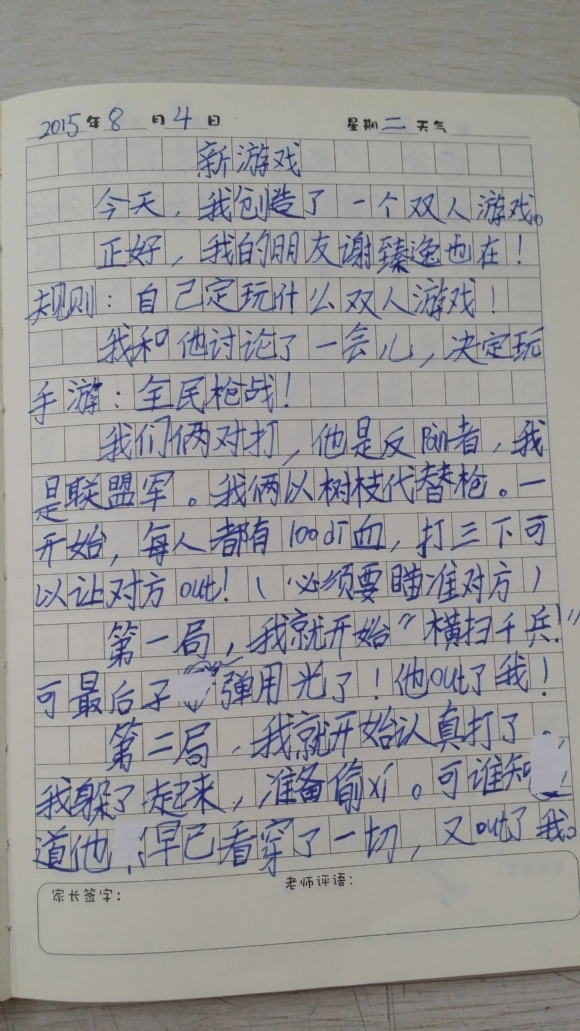 2015年8月4日 星期二天气
新游戏
今天，我创造了一个双人游戏。
正好，我的朋友谢臻逸也在！
规则：自己定玩什么双人游戏！
我和他讨论了一会儿，决定玩
手游：全民枪战！
我们俩对打，他是反pàn者，我
是联盟军。我俩以树枝代替枪。一
开始，每人都有100dī血，打三下可
以让对方out！（必须要瞄准对方）
第一局，我就开始“横扫千兵！”
可最后子弹用光了！他out了我！
第二局，我就开始认真打了。
我躲了起来，准备偷xí。可谁知
道他，早已看穿了一切，又out了我。
家长签字： 老师评语：